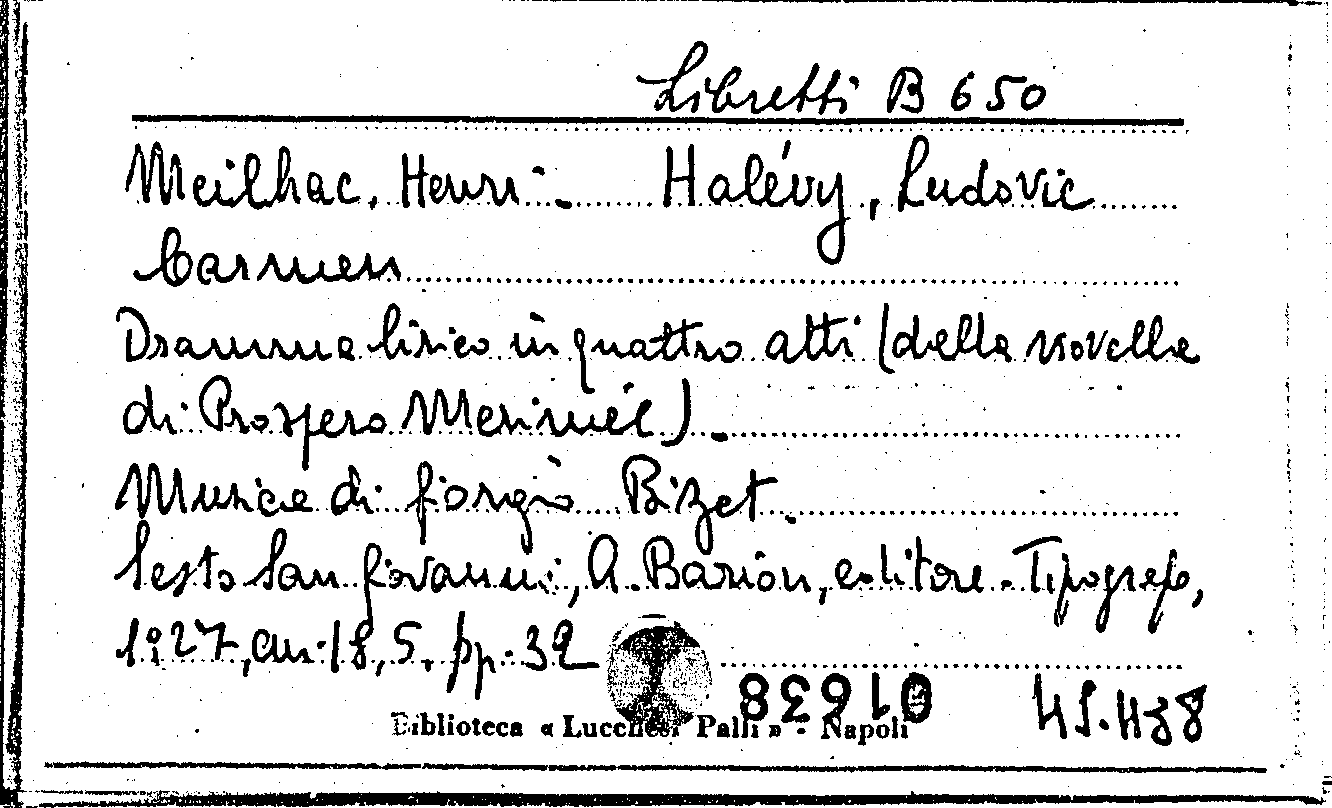 Libretti B 650
Meilhac, Henri - Halévy, Ludovic
Carmen
Dramma lirico in quattro atti (della novella
di Prospero Merimée).
Musica di Giorgio Bizet.
Sesto San Giovanni, A. Barion, editore-Tipografo,
1927, cm. 18,5. pp. 32
Biblioteca « Lucchesi Palli » - Napoli